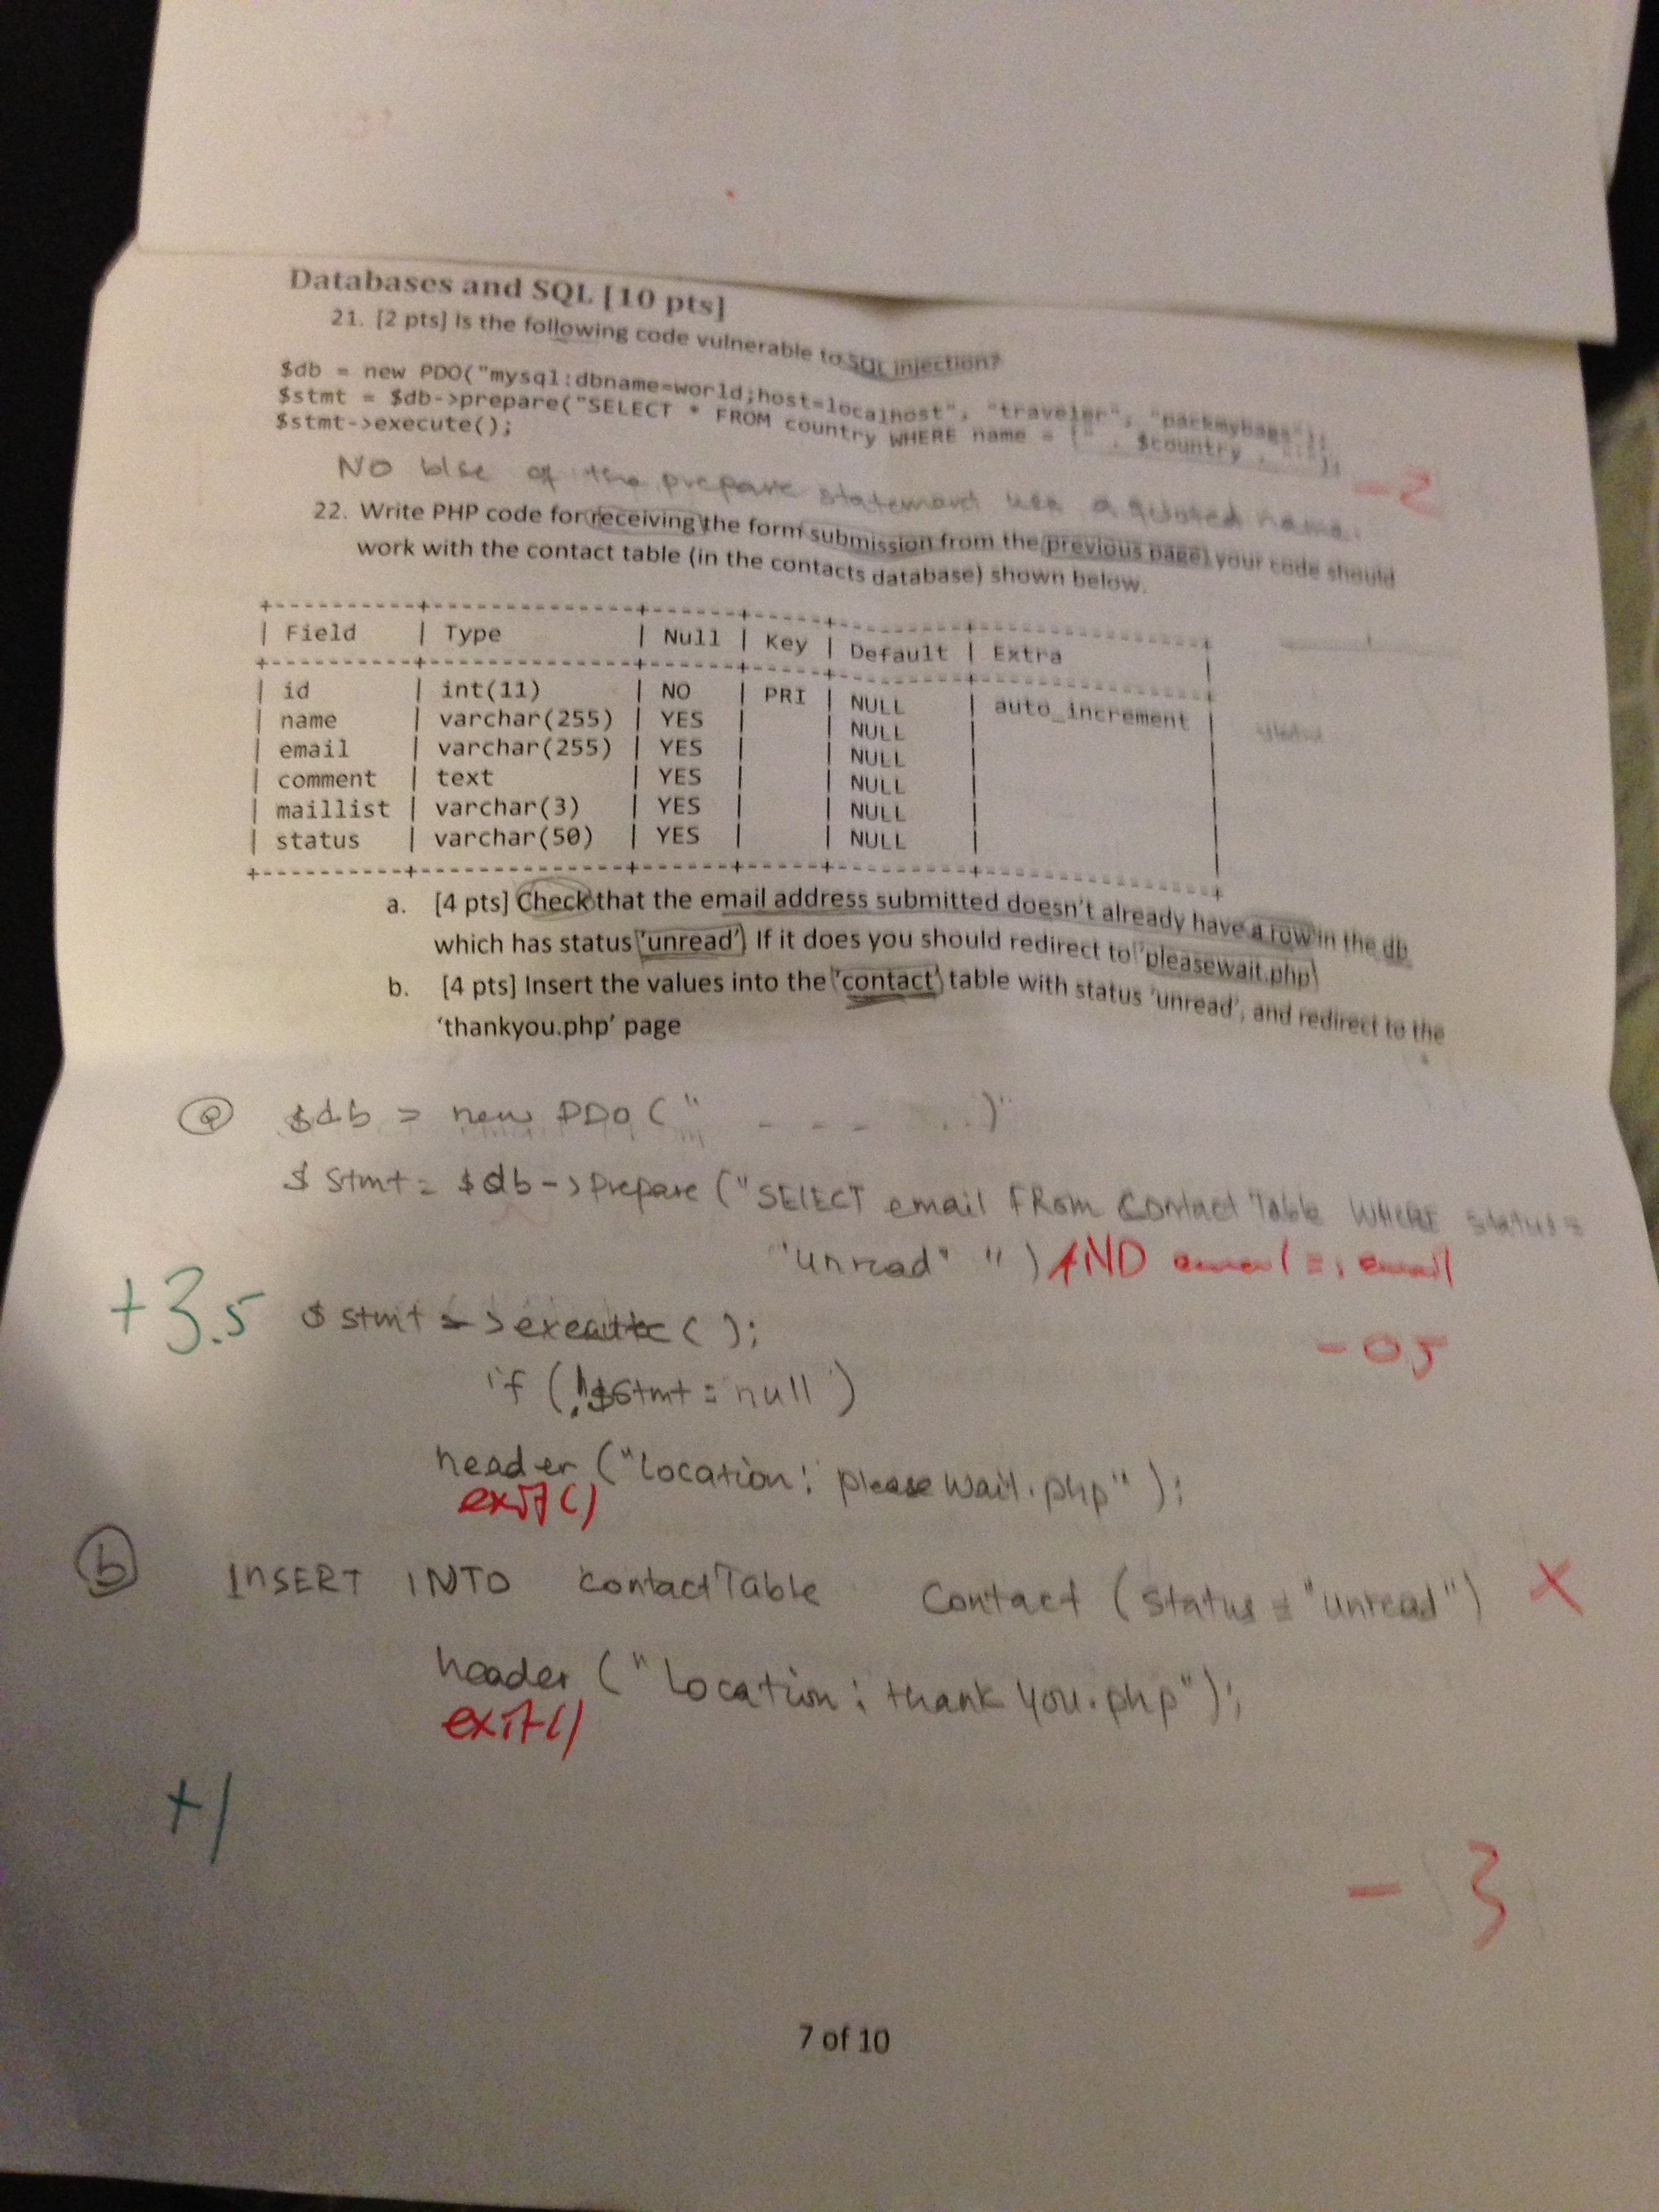 Databases and SQL [10 pts]
21. [2 pts] Is the following code vulnerable to SQL injection?
$db = new PDO("mysql:dbname=world;host=localhost", "traveler", "packmybags");
$stmt = $db->prepare("SELECT * FROM country WHERE name = '" . $country . "'");
$stmt->execute();
NO b/se of the prepare statement use a quoted name.
-2
22. Write PHP code for receiving the form submission from the previous page, your code should
work with the contact table (in the contacts database) shown below.
| Field | Type | Null | Key | Default | Extra |
| id | int(11) | NO | PRI | NULL | auto_increment |
| name | varchar(255) | YES | | NULL | |
| email | varchar(255) | YES | | NULL | |
| comment | text | YES | | NULL | |
| maillist | varchar(3) | YES | | NULL | |
| status | varchar(50) | YES | | NULL | |
a. [4 pts] Check that the email address submitted doesn't already have a row in the db
which has status 'unread'. If it does you should redirect to 'pleasewait.php'
b. [4 pts] Insert the values into the 'contact' table with status 'unread', and redirect to the
'thankyou.php' page
a $db = new PDO (" - - - ..)"
$ Stmt = $db -> Prepare ("SELECT email FROM Contact Table WHERE status =
"unread" ") AND email = : email
+3.5 $ stmt -> execute ( );
-05
if (!$stmt = null )
header ("Location: please wait.php" );
exit()
b INSERT INTO contactTable Contact (status = "unread") X
header ("Location: thank you.php");
exit()
+1
-3
7 of 10